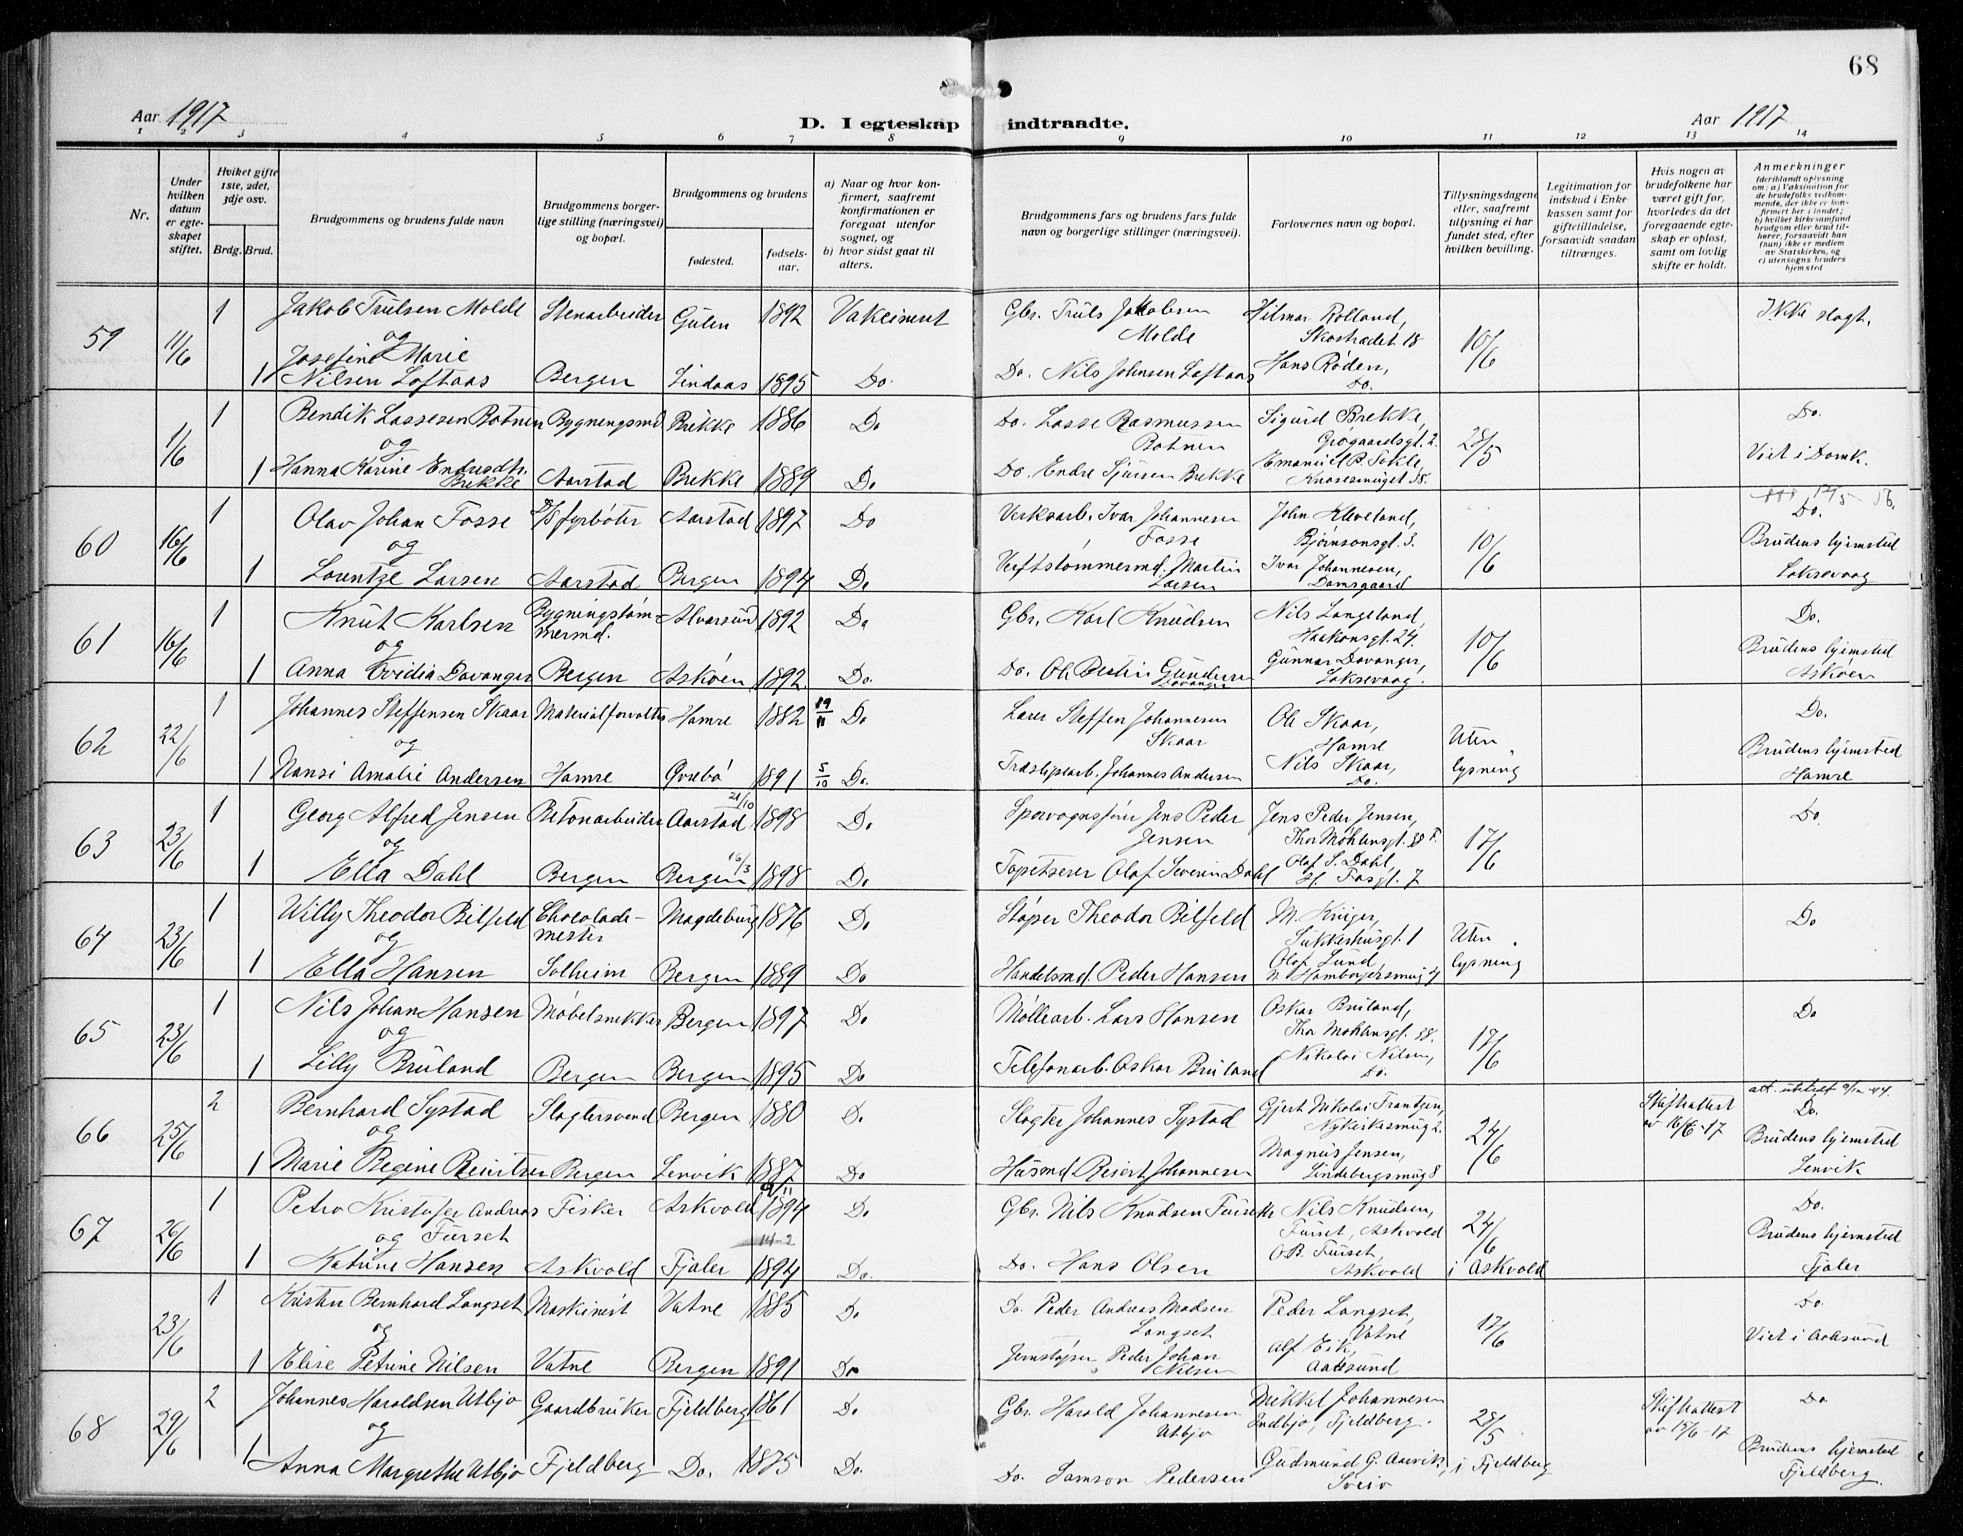 68
Aar 1917
D. I egteskap indtraadte.
Aar 1917
1 2 3 4 5 6 7 8 9 10 11 12 13 14
Nr.
Under hvilken datum er egte-skapet stiftet.
Hviket gifte 1ste, 2det, 3dje osv.
Brdg. Brud.
Brudgommens og brudens fulde navn
Brudgommens borger-lige stilling (næringsvei) og bopæl.
Brudgommens og brudens
fødested.
fødsels-aar.
a) Naar og hvor kon-firmert, saafremt konfirmationen er foregaat utenfor sognet, og
b) hvor sidst gaat til alters.
Brudgommens fars og brudens fars fulde navn og borgerlige stillinger (næringsvei).
Forlovernes navn og bopæl.
Tillysningsdagene eller, saafremt tillysning ei har fundet sted, efter hvilken bevilling.
Legitimation for indskud i Enke-kassen samt for giftetilladelse, forsaavidt saadan tiltrænges.
Hvis nogen av brudefolkene har været gift før, hvorledes da det foregaaende egte-skap er opløst, samt om lovlig skifte er holdt.
Anmerkninger
(deriblandt oplysning om: a) Vaksination for de brudefolks vedkom-mende, der ikke er kon-firmert her i landet; b) hvilket kirkesamfund brudgom eller brud til-hører, forsaavidt han (hun) ikke er medlem av Statskirken, og c) utensogns bruders hjemsted
59 11/6 1 Jakob Trulsen Molde Stenarbeider Gulen 1892 Vakcinert Gbr. Truls Jakobsen Molde Hilmar Rolland, Skostrædet 18 10/6 Ikke slegt.
og
1 Josefine Marie Nilsen Loftaas Bergen Lindaas 1895 Do. Do. Nils Johnsen Loftaas Hans Røden, Do.
1/6 1 Bendik Lassesen Botnen Bygningsmd Brekke 1886 Do Do. Lasse Rasmussen Botnen Sigurd Brekke, Grøgaardsgt. 2. 28/5 Do.
og Viet i Domk.
1 Hanna Karine Endresdtr. Brekke Aarstad Brekke 1889 Do Do. Endre Sjursen Brekke Emanuel P. Takle, Knøsesmuget 38.
60 16/6 1 Olav Johan Fosse D/S fyrbøter Aarstad 1897 Do Verksarb. Ivar Johannesen Fosse John Kleveland, Bjørnsonsgt. 3. 10/6 Do.
og Brudens hjemsted Laksevaag
1 Lorentze Larsen Aarstad Bergen 1894 Do Verftstømmermd. Martin Larsen Ivar Johannesen, Damsgaard
61 16/6 1 Knut Karlsen Bygningstøm-mermd. Alversund 1892 Do Gbr. Karl Knudsen Nils Langeland, Haakonsgt. 24. 10/6 Do.
og Brudens hjemsted Askøen
1 Anna Ovidia Davanger Bergen Askøen 1892. Do. Do. Ole Bertin Gunders Davanger Gunnar Davanger, Laksevaag.
62 22/6 1 Johannes Steffensen Skaar Materialforvalter Hamre 1882 19/11 Do Lærer Steffen Johannesen Skaar Ole Skaar, Hamre Uten lysning Do.
og Brudens hjemsted Hamre
1 Nansi Amalie Andersen Hamre Øvrebø 1891 5/10 Do. Træsliperarb. Johannes Andersen Nils Skaar, Do.
63 23/6 1 Georg Alfred Jensen Betonarbeider Aarstad 21/10 1898 Do Sporvognsfører Jens Peder Jensen Jens Peder Jensen, Thor Møhlensgt. 38 F. 17/6 Do.
og
1 Ella Dahl Bergen Bergen 16/3 1898 Do Tapetserer Olaf Severin Dahl Olaf S. Dahl, Fosgt. 7
64 23/6 1 Willy Theodor Bilfeld Chocolade-mester Magdeburg 1876 Do Støper Theodor Bilfeld M. Krüger, Sukkerhusgt. 1 Uten lysning Do
og
1 Ella Hansen Solheim Bergen 1889 Do Handelsmd. Peder Hansen Olaf Lund, N. Hambergersmug 4
65 23/6 1 Nils Johan Hansen Møbelsnekker Bergen 1897 Do Møllearb. Lars Hansen Oskar Bruland, Thor Møhlensgt. 38. 17/6 Do
og
1 Lilly Bruland Bergen Bergen 1895 Do Telefonarb. Oskar Bruland Nikolai Nilsen, Do.
66 25/6 2 Bernhard Systad Slagtersvend Bergen 1880 Do Slagter Johannes Systad Gjert Nikolai Frantzen, Nykirkesmug 2. 24/6 Skifteattest av 16/6-17 att. utstedt Do.
og Brudens hjemsted Lenvik
1 Marie Regine Reiertsen Bergen Lenvik 1887 Do Husmd. Reiert Johannesen Magnus Jensen, Lindebergsmug 8
67 26/6 1 Petro Kristofer Andreas Furset Fisker Askvold 9/11 1894 Do Gbr. Nils Knudsen Furset Nils Knudsen, Furset, Askvold 24/6 i Askvold Do.
og Brudens hjemsted Fjaler
1 Katrine Hansen Askvold Fjaler 14-2 1894 Do. Do. Hans Olsen O.B. Furset, Askvold
23/6 1 Kristen Bernhard Langset Maskinist Vatne 1885 Do Do. Peder Andreas Madsen Langset Peder Langset, Vatne 17/6 Do.
og Viet i Aalesund
1 Elise Petrine Nilsen Vatne Bergen 1891 Do Jernstøper Peder Johan Nilsen Alf Eik, Aalesund
68 29/6 2 Johannes Haraldsen Utbjo Gaardbruker Fjeldberg 1861 Do Gbr. Harald Johannesen Utbjo Mikkel Johannesen Indbjo, Fjeldberg. 28/5 i Fjeldberg Skifteattest av 15/6-17 Do
og Brudens hjemsted Fjeldberg.
1 Anna Margrethe Utbjo Fjeldberg Do. 1875 Do. Do. Samson Pedersen Gudmund G. Aarvik, Sveio